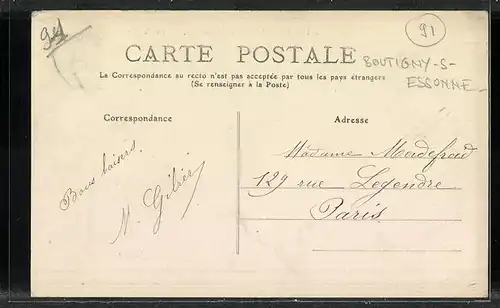 94
91
CARTE POSTALE
BOUTIGNY-S-
ESSONNE
La Correspondance au recto n'est pas acceptée par tous les pays étrangers
(Se renseigner à la Poste)
Correspondance
Adresse
Bons baisers.
Madame
129 rue Legendre
Paris